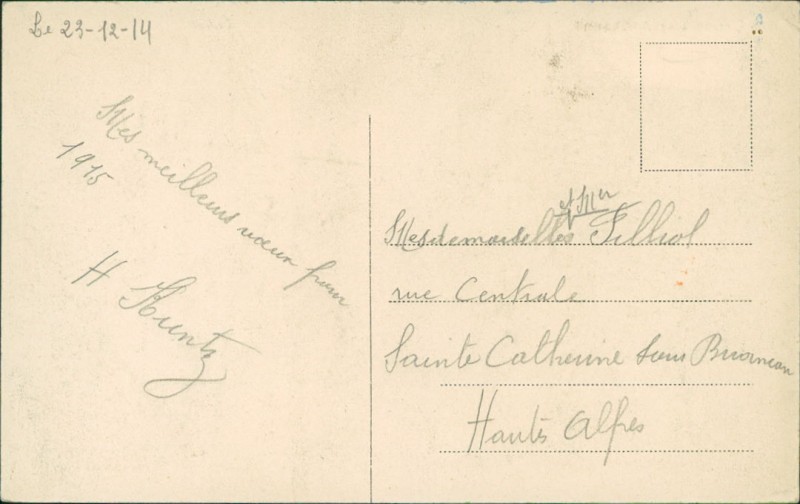 Le 23-12-14
Mes meilleurs vœux pour
1915
H Kuntz
et Mr
Mesdemoiselles Filliol
rue Centrale
Sainte Catherine sous Briancon
Hautes Alpes